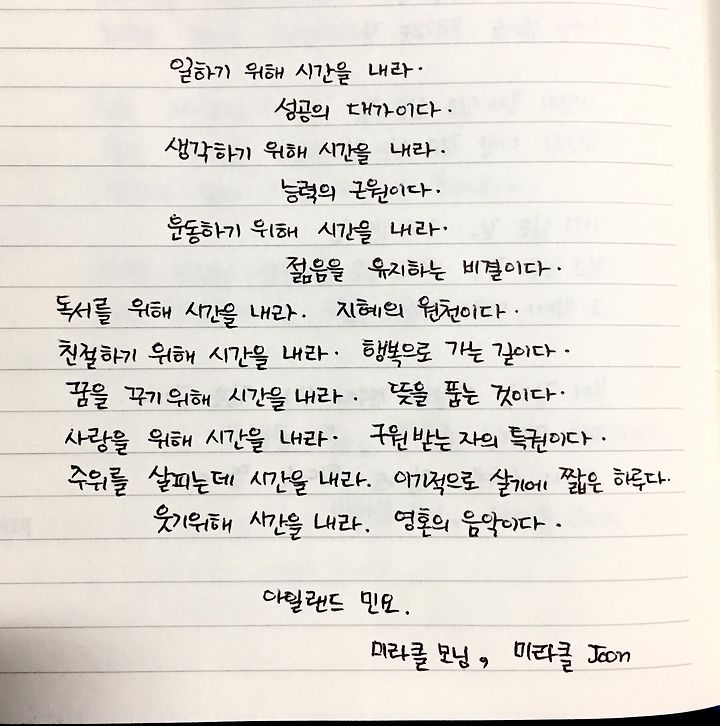 일하기 위해 시간을 내라.
성공의 대가이다.
생각하기 위해 시간을 내라.
능력의 근원이다.
운동하기 위해 시간을 내라.
젊음을 유지하는 비결이다.
독서를 위해 시간을 내라. 지혜의 원천이다.
친절하기 위해 시간을 내라. 행복으로 가는 길이다.
꿈을 꾸기 위해 시간을 내라. 뜻을 품는 것이다.
사랑을 위해 시간을 내라. 구원받는 자의 특권이다.
주위를 살피는데 시간을 내라. 이기적으로 살기에 짧은 하루다.
웃기위해 시간을 내라. 영혼의 음악이다.
아일랜드 민요.
미라클 모닝, 미라클 Joon